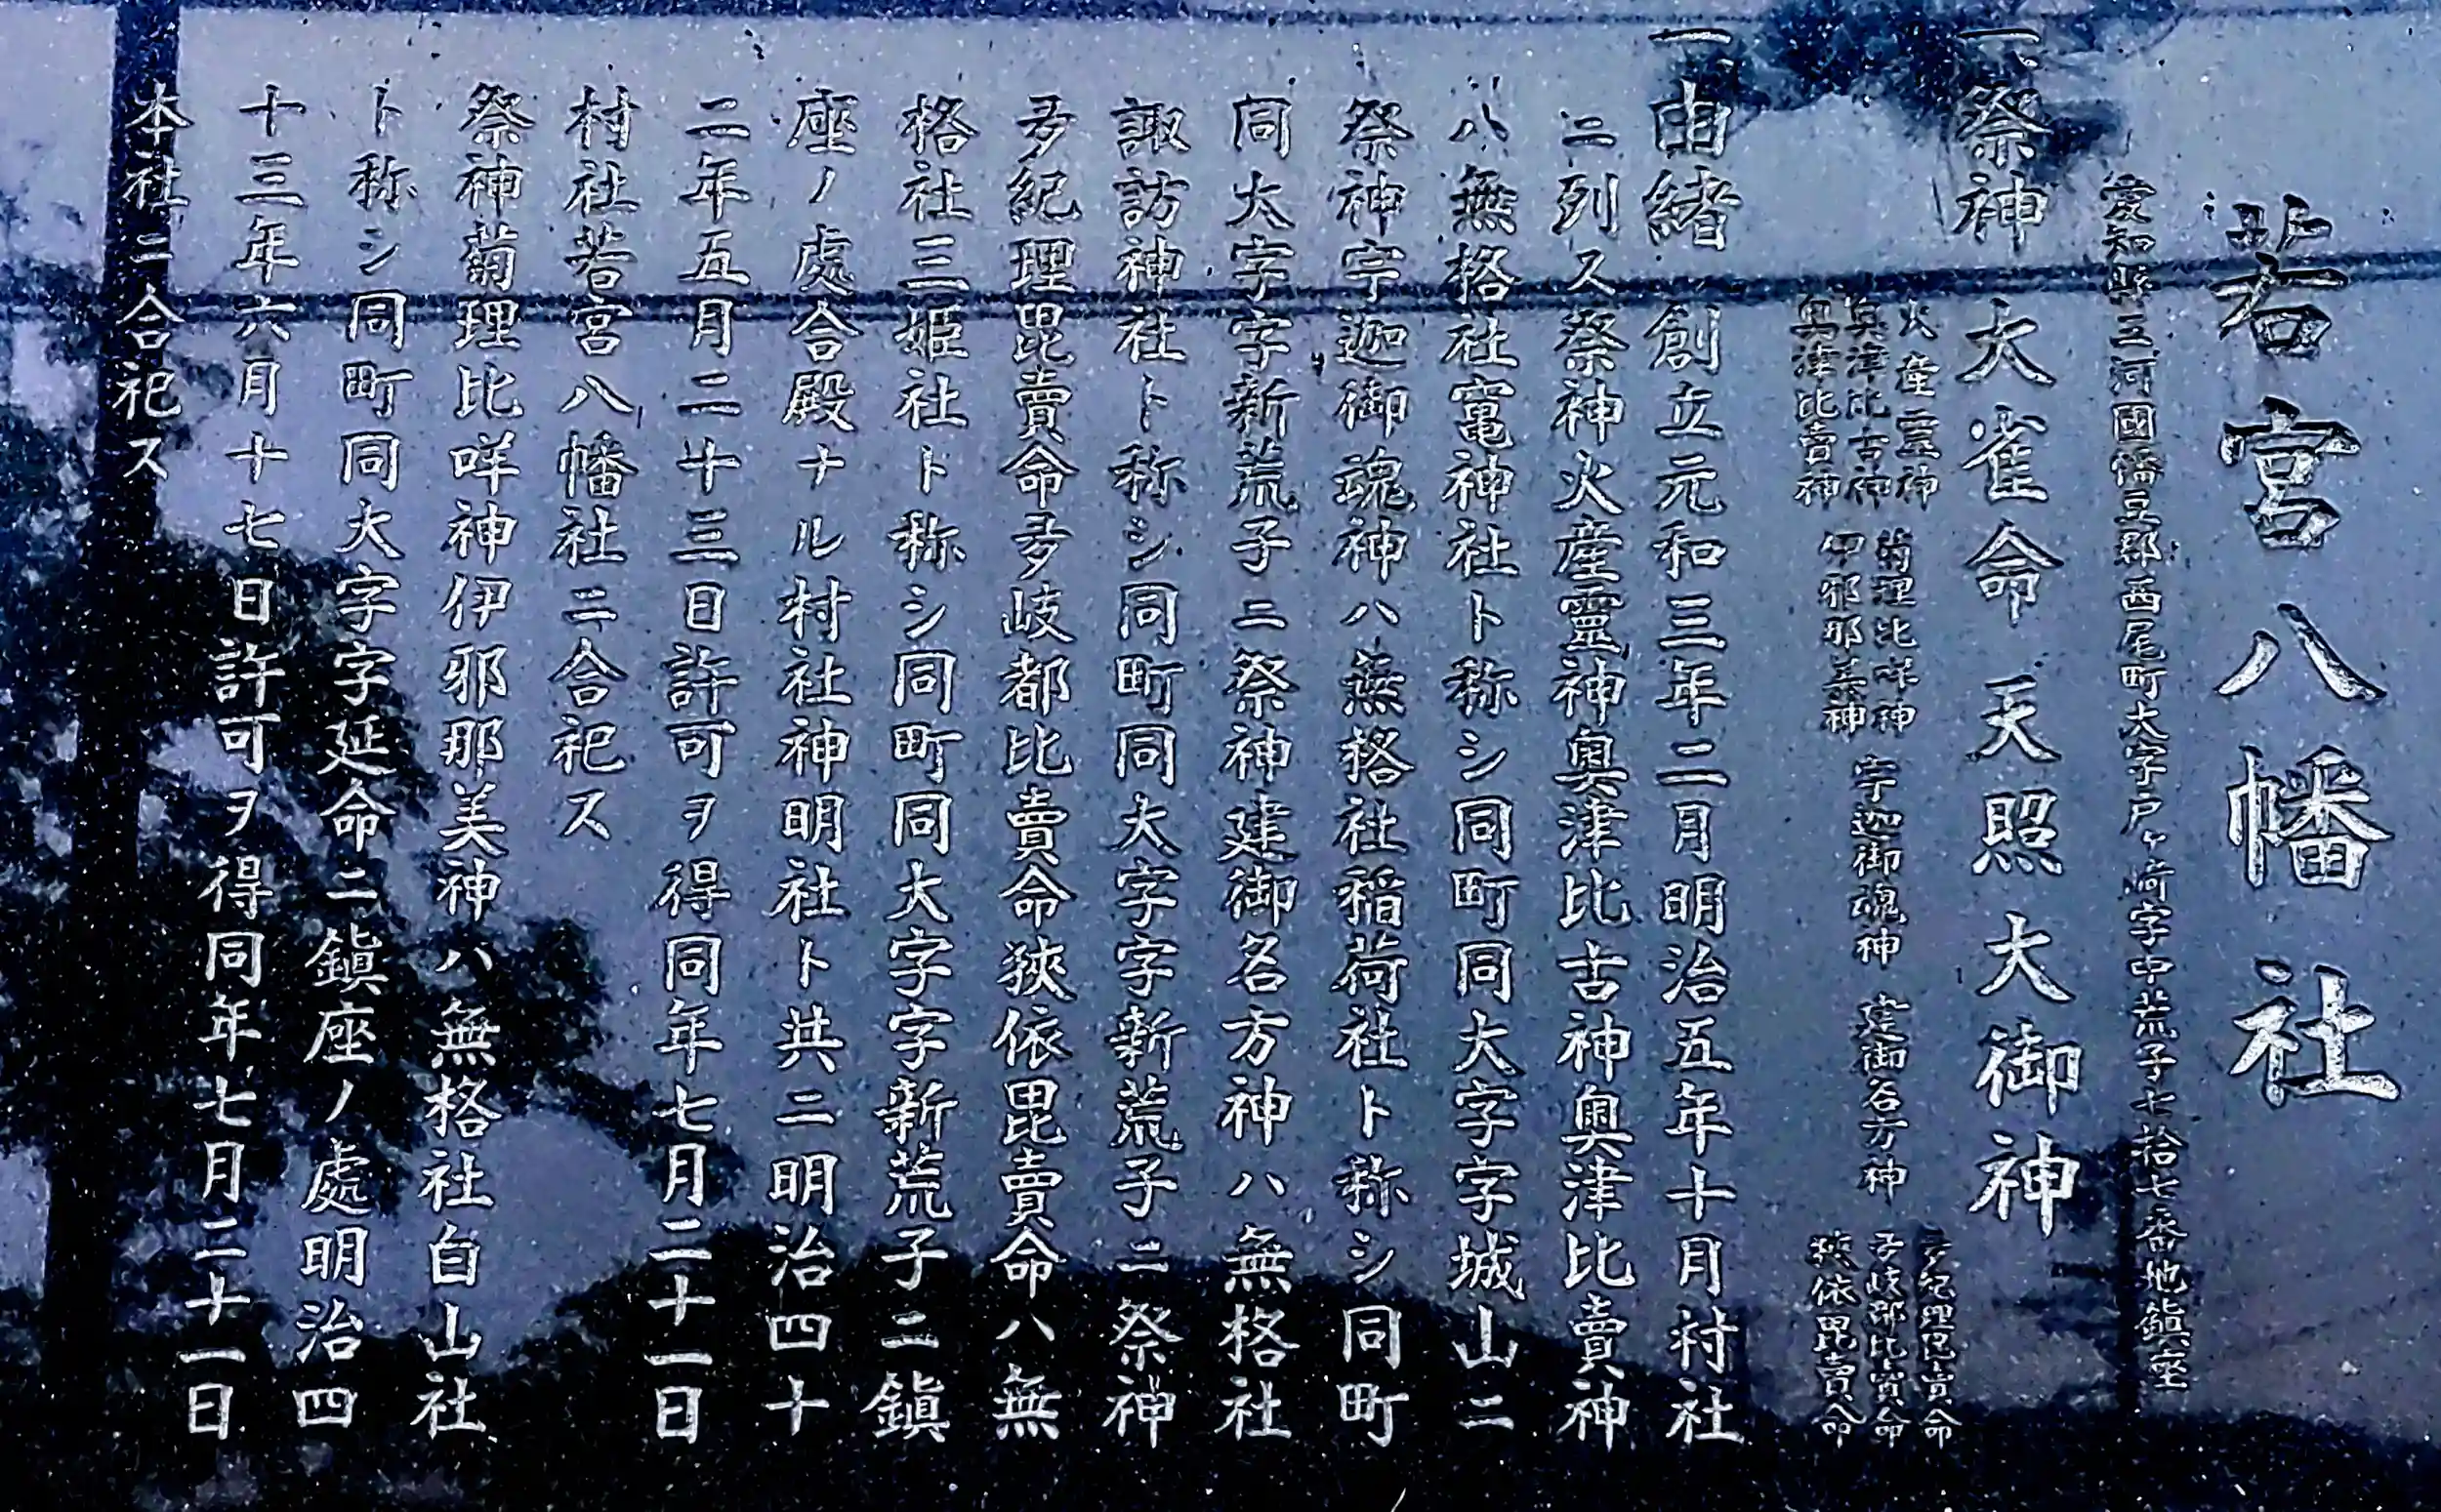 若宮八幡社
愛知縣三河國幡豆郡西尾町大字戸ヶ崎字中荒子七拾七番地鎮座
一、祭神 大雀命 天照大御神
火産霊神
奥津比古神
奥津比賣神
菊理比咩神
伊邪那美神
宇迦御魂神
建御名方神
多紀理毘賣命
多岐都比賣命
狹依毘賣命
一、由緒 創立元和三年二月明治五年十月村社
ニ列ス祭神火産靈神奥津比古神奥津比賣神
ハ無格社竃神社ト称シ同町同大字字城山ニ
祭神宇迦御魂神ハ無格社稲荷社ト称シ同町
同大字字新荒子ニ祭神建御名方神ハ無格社
諏訪神社ト称シ同町同大字字新荒子ニ祭神
多紀理毘賣命多岐都比賣命狹依毘賣命ハ無
格社三姫社ト称シ同町同大字字新荒子ニ鎮
座ノ處合殿ナル村社神明社ト共ニ明治四十
二年五月二十三日許可ヲ得同年七月二十一日
村社若宮八幡社ニ合祀ス
祭神菊理比咩神伊邪那美神ハ無格社白山社
ト称シ同町同大字字延命ニ鎮座ノ處明治四
十三年六月十七日許可ヲ得同年七月二十一日
本社ニ合祀ス